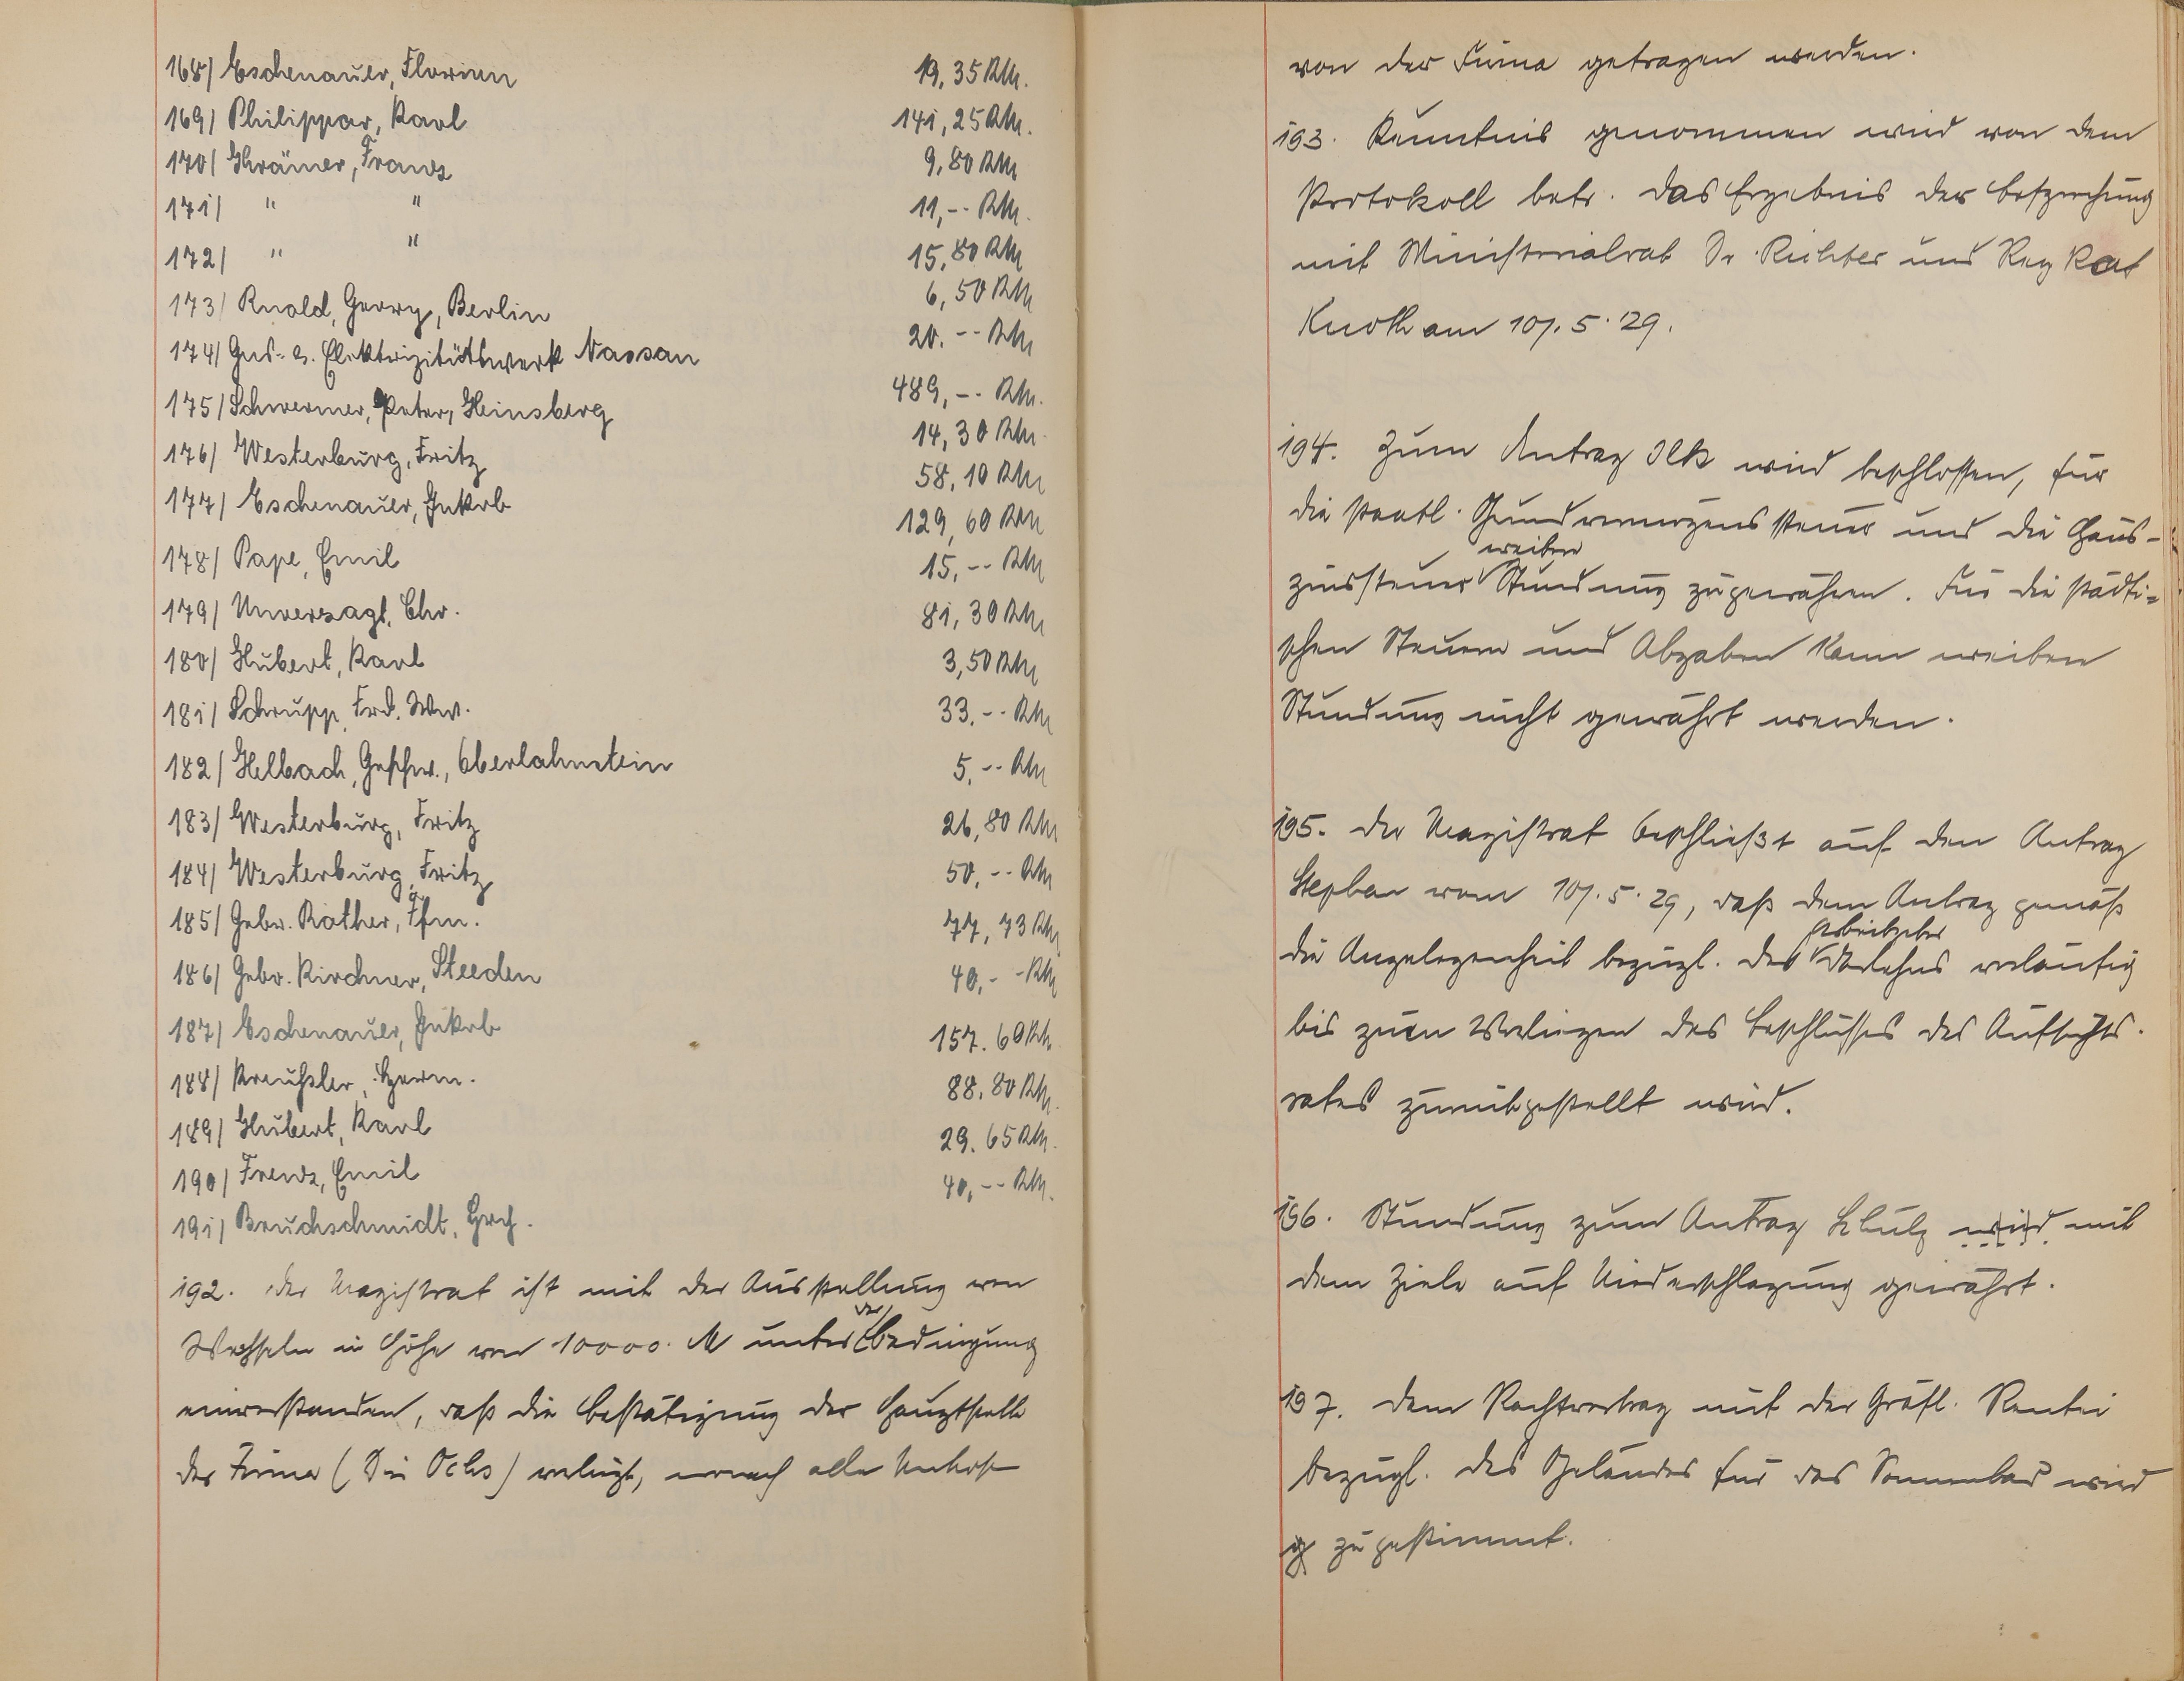 168/ Eschenauer, Florian 19,35 RM.
169/ Philippar, Karl 141,25 RM.
170/ Krämer, Franz 9,80 RM
171/ " " 11,-- RM.
172/ " " 15,80 RM
173/ Ruold, Georg, Berlin 6,50 RM
174/ Gas- u. Elektrizitätswerk Nassau 20.-- RM
175/ Schwermer, Peter, Heinsberg 489,-- RM.
176/ Westerburg, Fritz 14,30 RM.
177/ Eschenauer, Jakob 58,10 RM
178/ Pape, Emil 129,60 RM
179/ Unverzagt, Chr. 15,-- RM
180/ Hubert, Karl 81,30 RM
181/ Schrupp, Frd. Ww. 3,50 RM
182/ Helbach, Geschw., Oberlahnstein 33.-- RM
183/ Westerburg, Fritz 5,-- RM
184/ Westerburg, Fritz 26,80 RM
185/ Gebr. Rother, Ffm. 50,-- RM
186/ Gebr. Kirchner, Steeden 77,73 RM
187/ Eschenauer, Jakob 40,-- RM
188/ Kreußler, Herm. 157.60 RM.
189/ Hubert, Karl 88,80 RM.
190/ Frenz, Emil 29.65 RM.
191/ Bruchschmidt, Hrch. 40,-- RM.
192. Der Magistrat ist mit der Ausstellung von
Wechseln in Höhe von 10000. M unter der Bedingung
einverstanden, daß die Bestätigung der Hauptstelle
der Firma (Dr. Ochs) vorliegt, wonach alle Unkosten
von der Firma getragen werden.
193. Kenntnis genommen wird von dem
Protokoll betr. das Ergebnis der Besprechung
mit Ministerialrat Dr. Richter und Reg Rat
Knoth am 17.5.29.
194. Zum Antrag Ilk wird beschlossen, für
die staatl. Grundvermögenssteuer und die Haus-
zinssteuer weitere Stundung zu gewähren. Für die städti=
schen Steuern und Abgaben kann weitere
Stundung nicht gewährt werden.
195. Der Magistrat beschließt auf den Antrag
Stephan vom 17.5.29, daß dem Antrag gemäß
die Angelegenheit bezügl. des Arbeitgeber Darlehns vorläufig
bis zum Vorliegen des Beschlusses des Aufsichts-
rates zurückgestellt wird.
196. Stundung zum Antrag Schulz wird mit
dem Ziele auf Niederschlagung gewährt.
197. Dem Pachtvertrag mit der Gräfl. Rentei
bezügl. des Geländes für das Sonnenbad wird
zugestimmt.